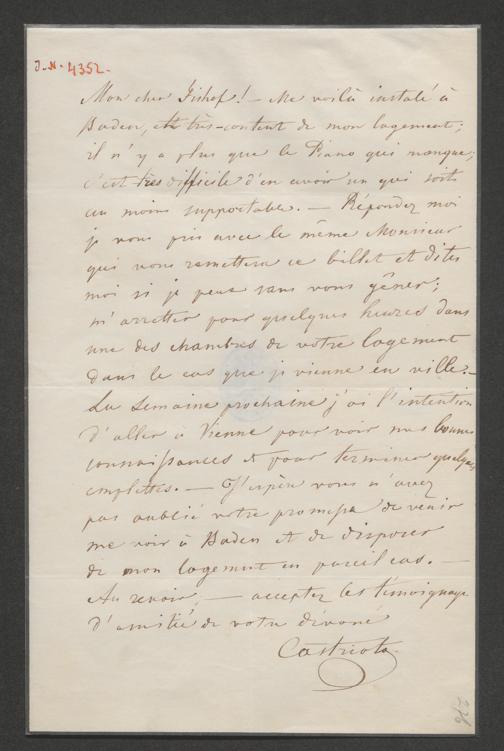 J.N. 4352.
Mon cher Fishof! – Me voilà instalé à
Baden, et très-content de mon logement;
il n'y a plus que le Piano qui manque;
c'est très difficile d'en avoir un qui soit
au moins supportable. – Répondez moi
je vous prie avec le même Monsieur
qui vous remettera ce billet et dites
moi si je peux sans vous gêner;
m'arretter pour quelques heures dans
une des chambres de votre logement
dans le cas que je vienne en ville? –
La semaine prochaine j'ai l'intention
d'aller à Vienne pour voir mes bonnes
connaissances et pour terminer quelques
emplettes. – J'espère vous n'avez
pas oublié votre promesse de venir
me voir à Baden et de disposer
de mon logement en pareil cas. –
Au revoir, – acceptez les témoignage
d'amitié de votre dévoué
Castriota